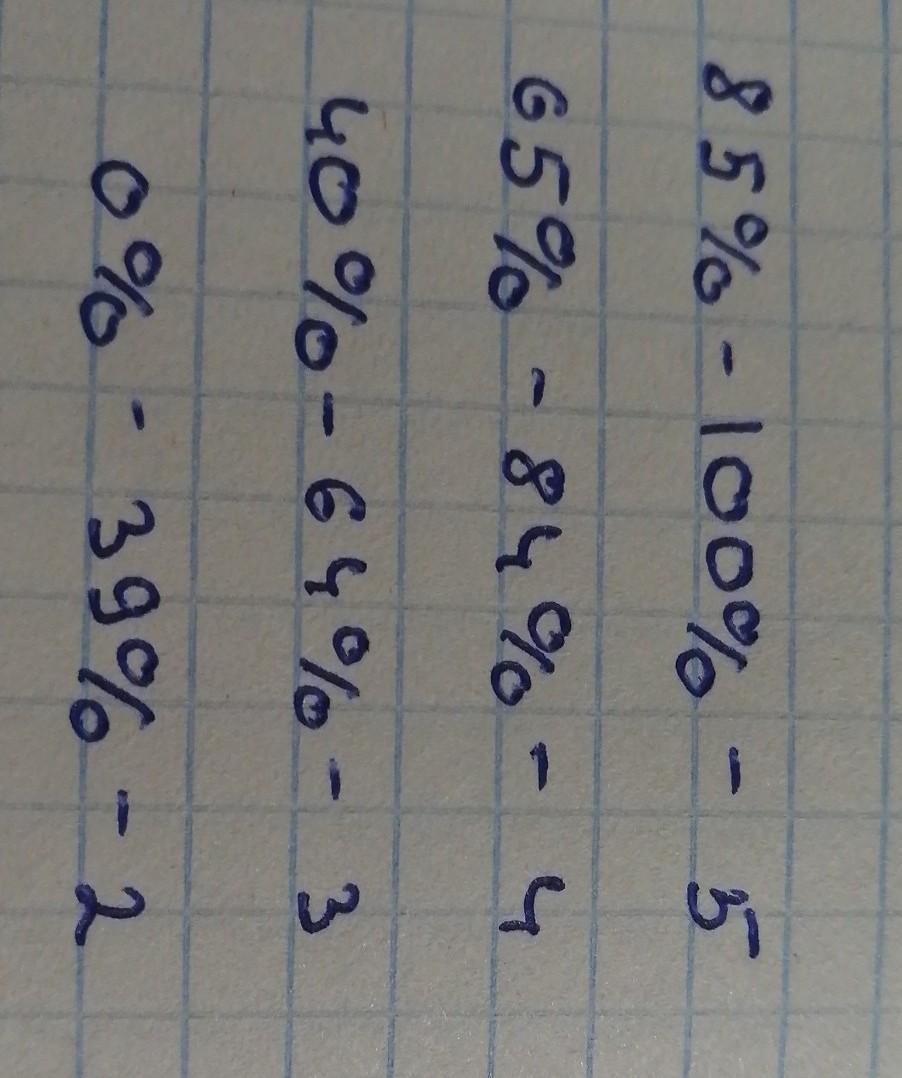 85% - 100% - 5
65% - 84% - 4
40% - 64% - 3
0% - 39% - 2